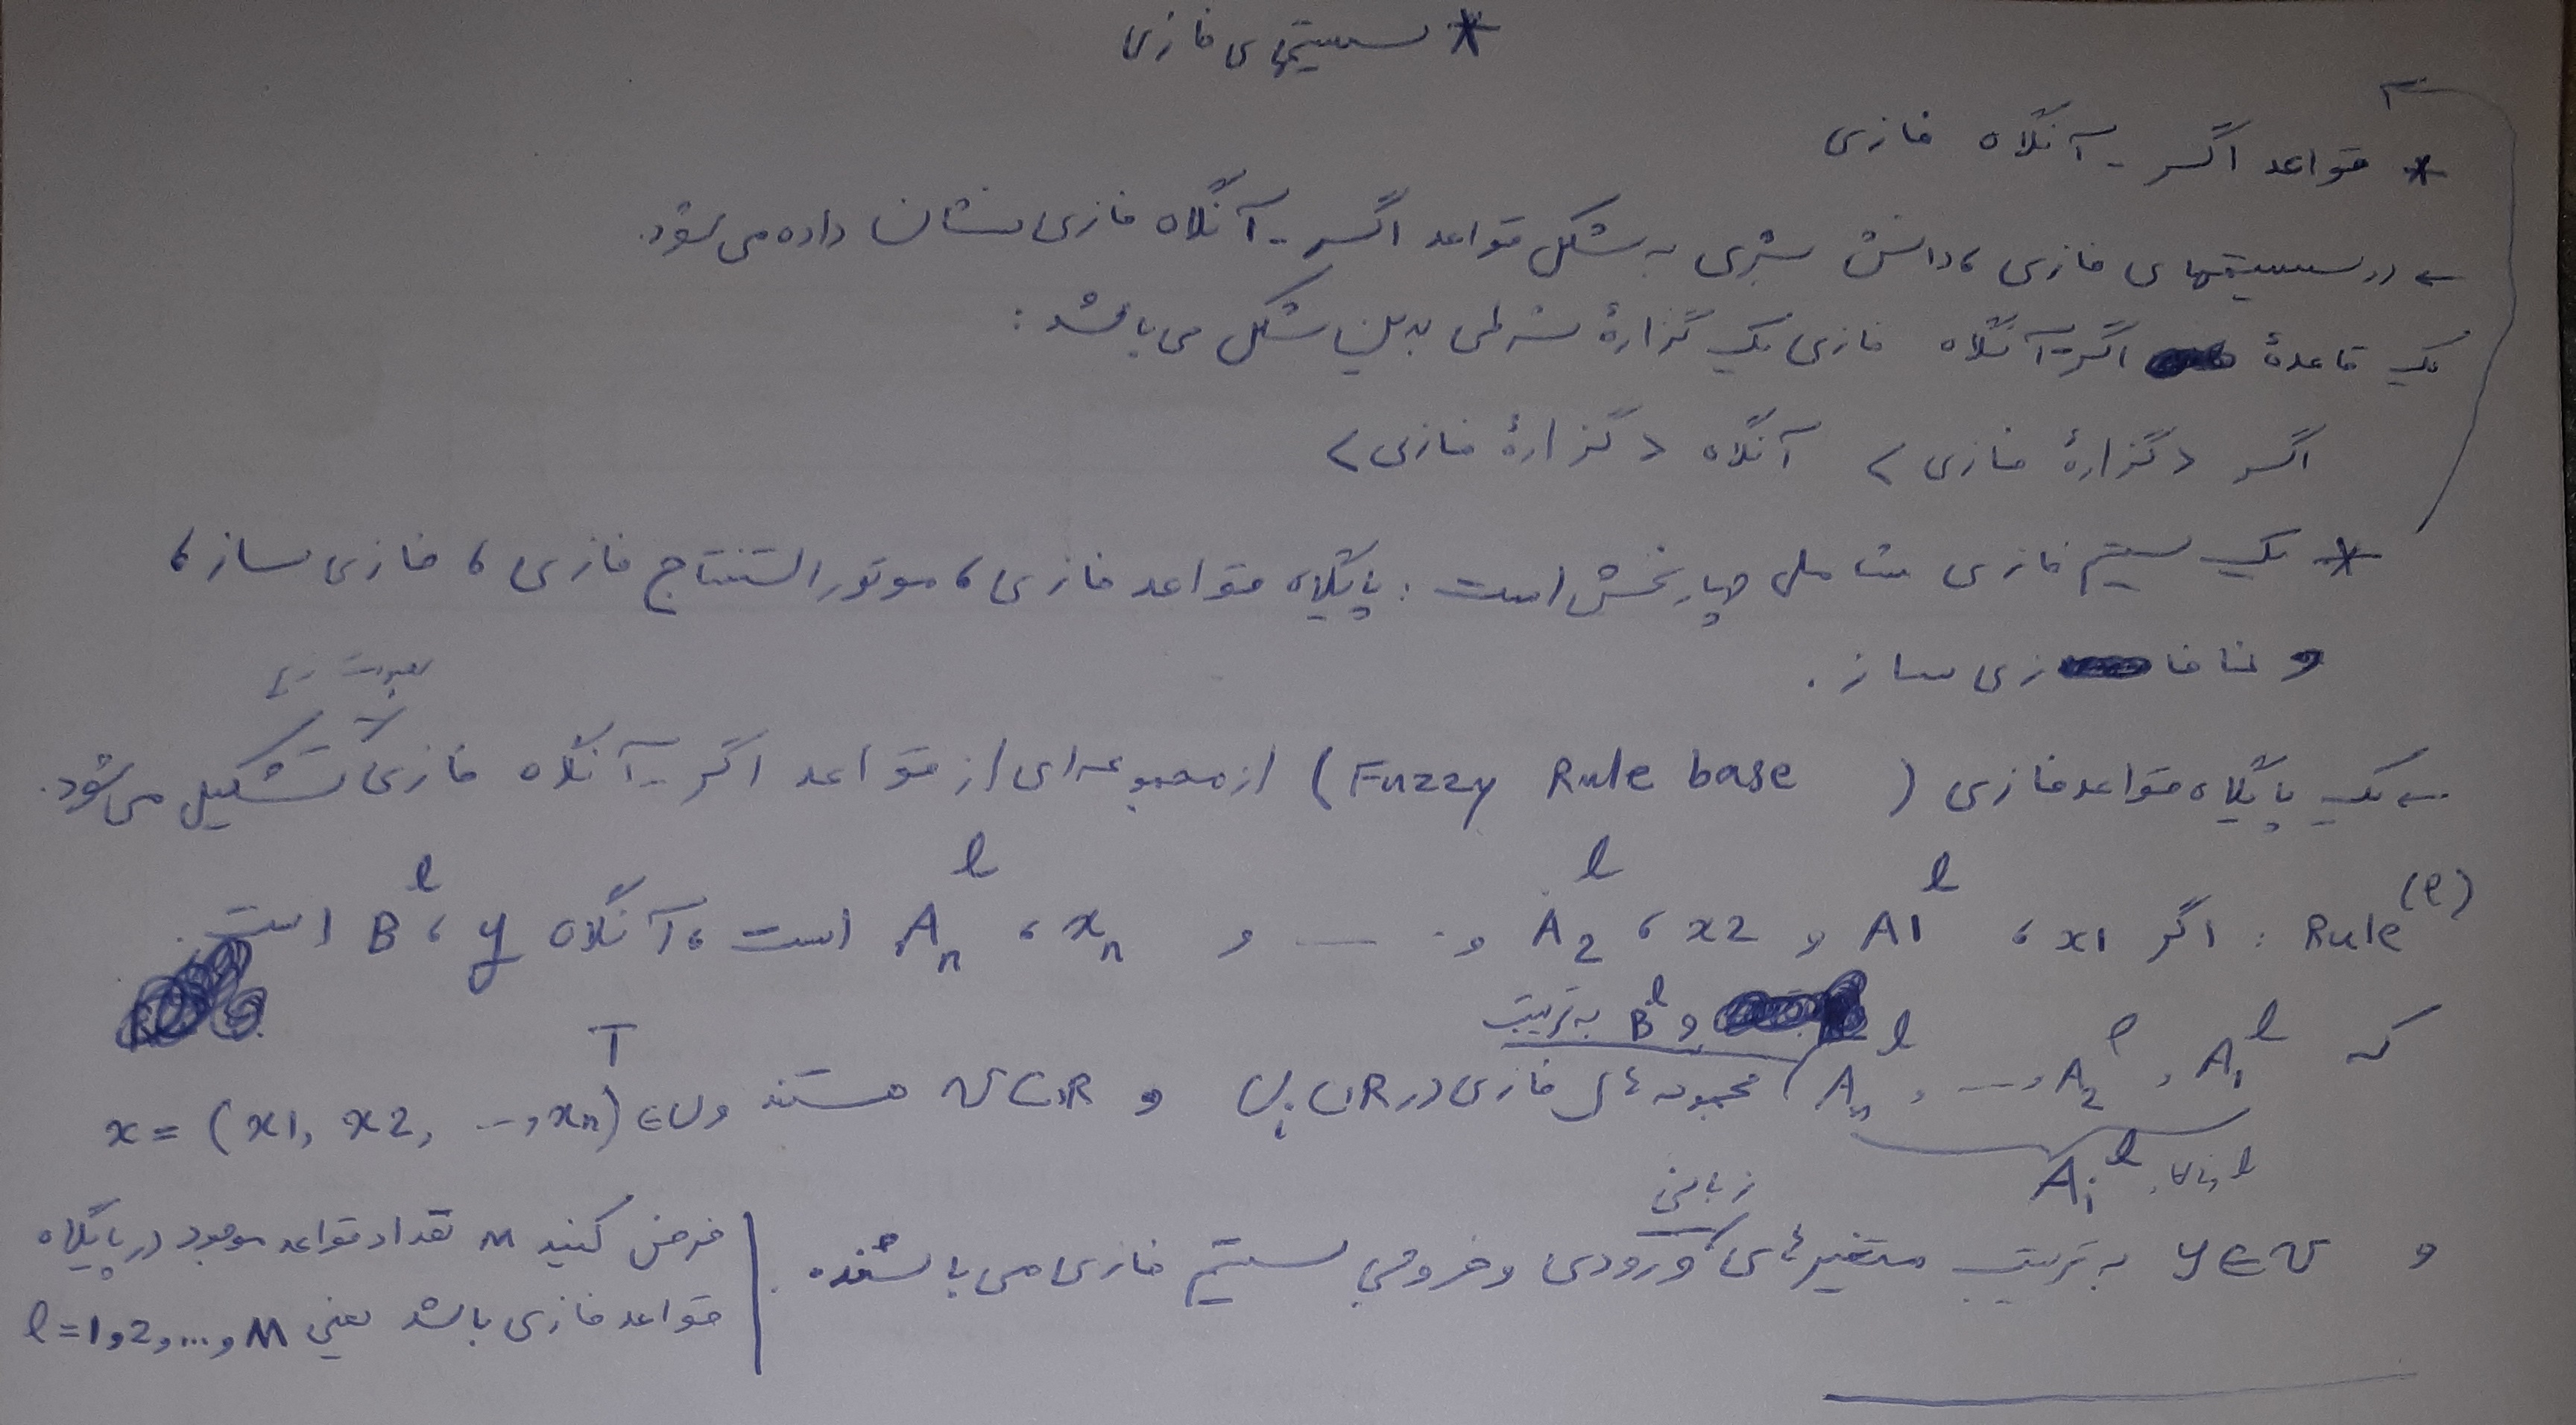 * سیستمهای فازی
* قواعد اگر - آنگاه فازی
← در سیستمهای فازی، دانش بشری به شکل قواعد اگر - آنگاه فازی نشان داده می‌شود.
یک قاعدهٔ اگر - آنگاه فازی یک گزارهٔ شرطی بدین شکل می‌باشد:
اگر < گزارهٔ فازی > آنگاه < گزارهٔ فازی >
* یک سیستم فازی شامل چهار بخش است: پایگاه قواعد فازی، موتور استنتاج فازی، فازی ساز،
و نافازی ساز.
بصورت زیر
← یک پایگاه قواعد فازی (Fuzzy Rule base) از مجموعه‌ای از قواعد اگر - آنگاه فازی تشکیل می‌شود.
Rule^(l) : اگر x1، A1^l و x2، A2^l و ... و xn، An^l است، آنگاه y، B^l است.
و B^l به ترتیب
که A1^l، A2^l، ...، An^l مجموعه‌های فازی در Ui⊂R و V⊂R هستند و x = (x1, x2, ..., xn)^T ∈U
Ai^l, ∀i,l
زبانی
و y∈V به ترتیب متغیرهای ورودی و خروجی سیستم فازی می‌باشند.
فرض کنید M تعداد قواعد موجود در پایگاه
قواعد فازی باشد یعنی l=1,2,...,M